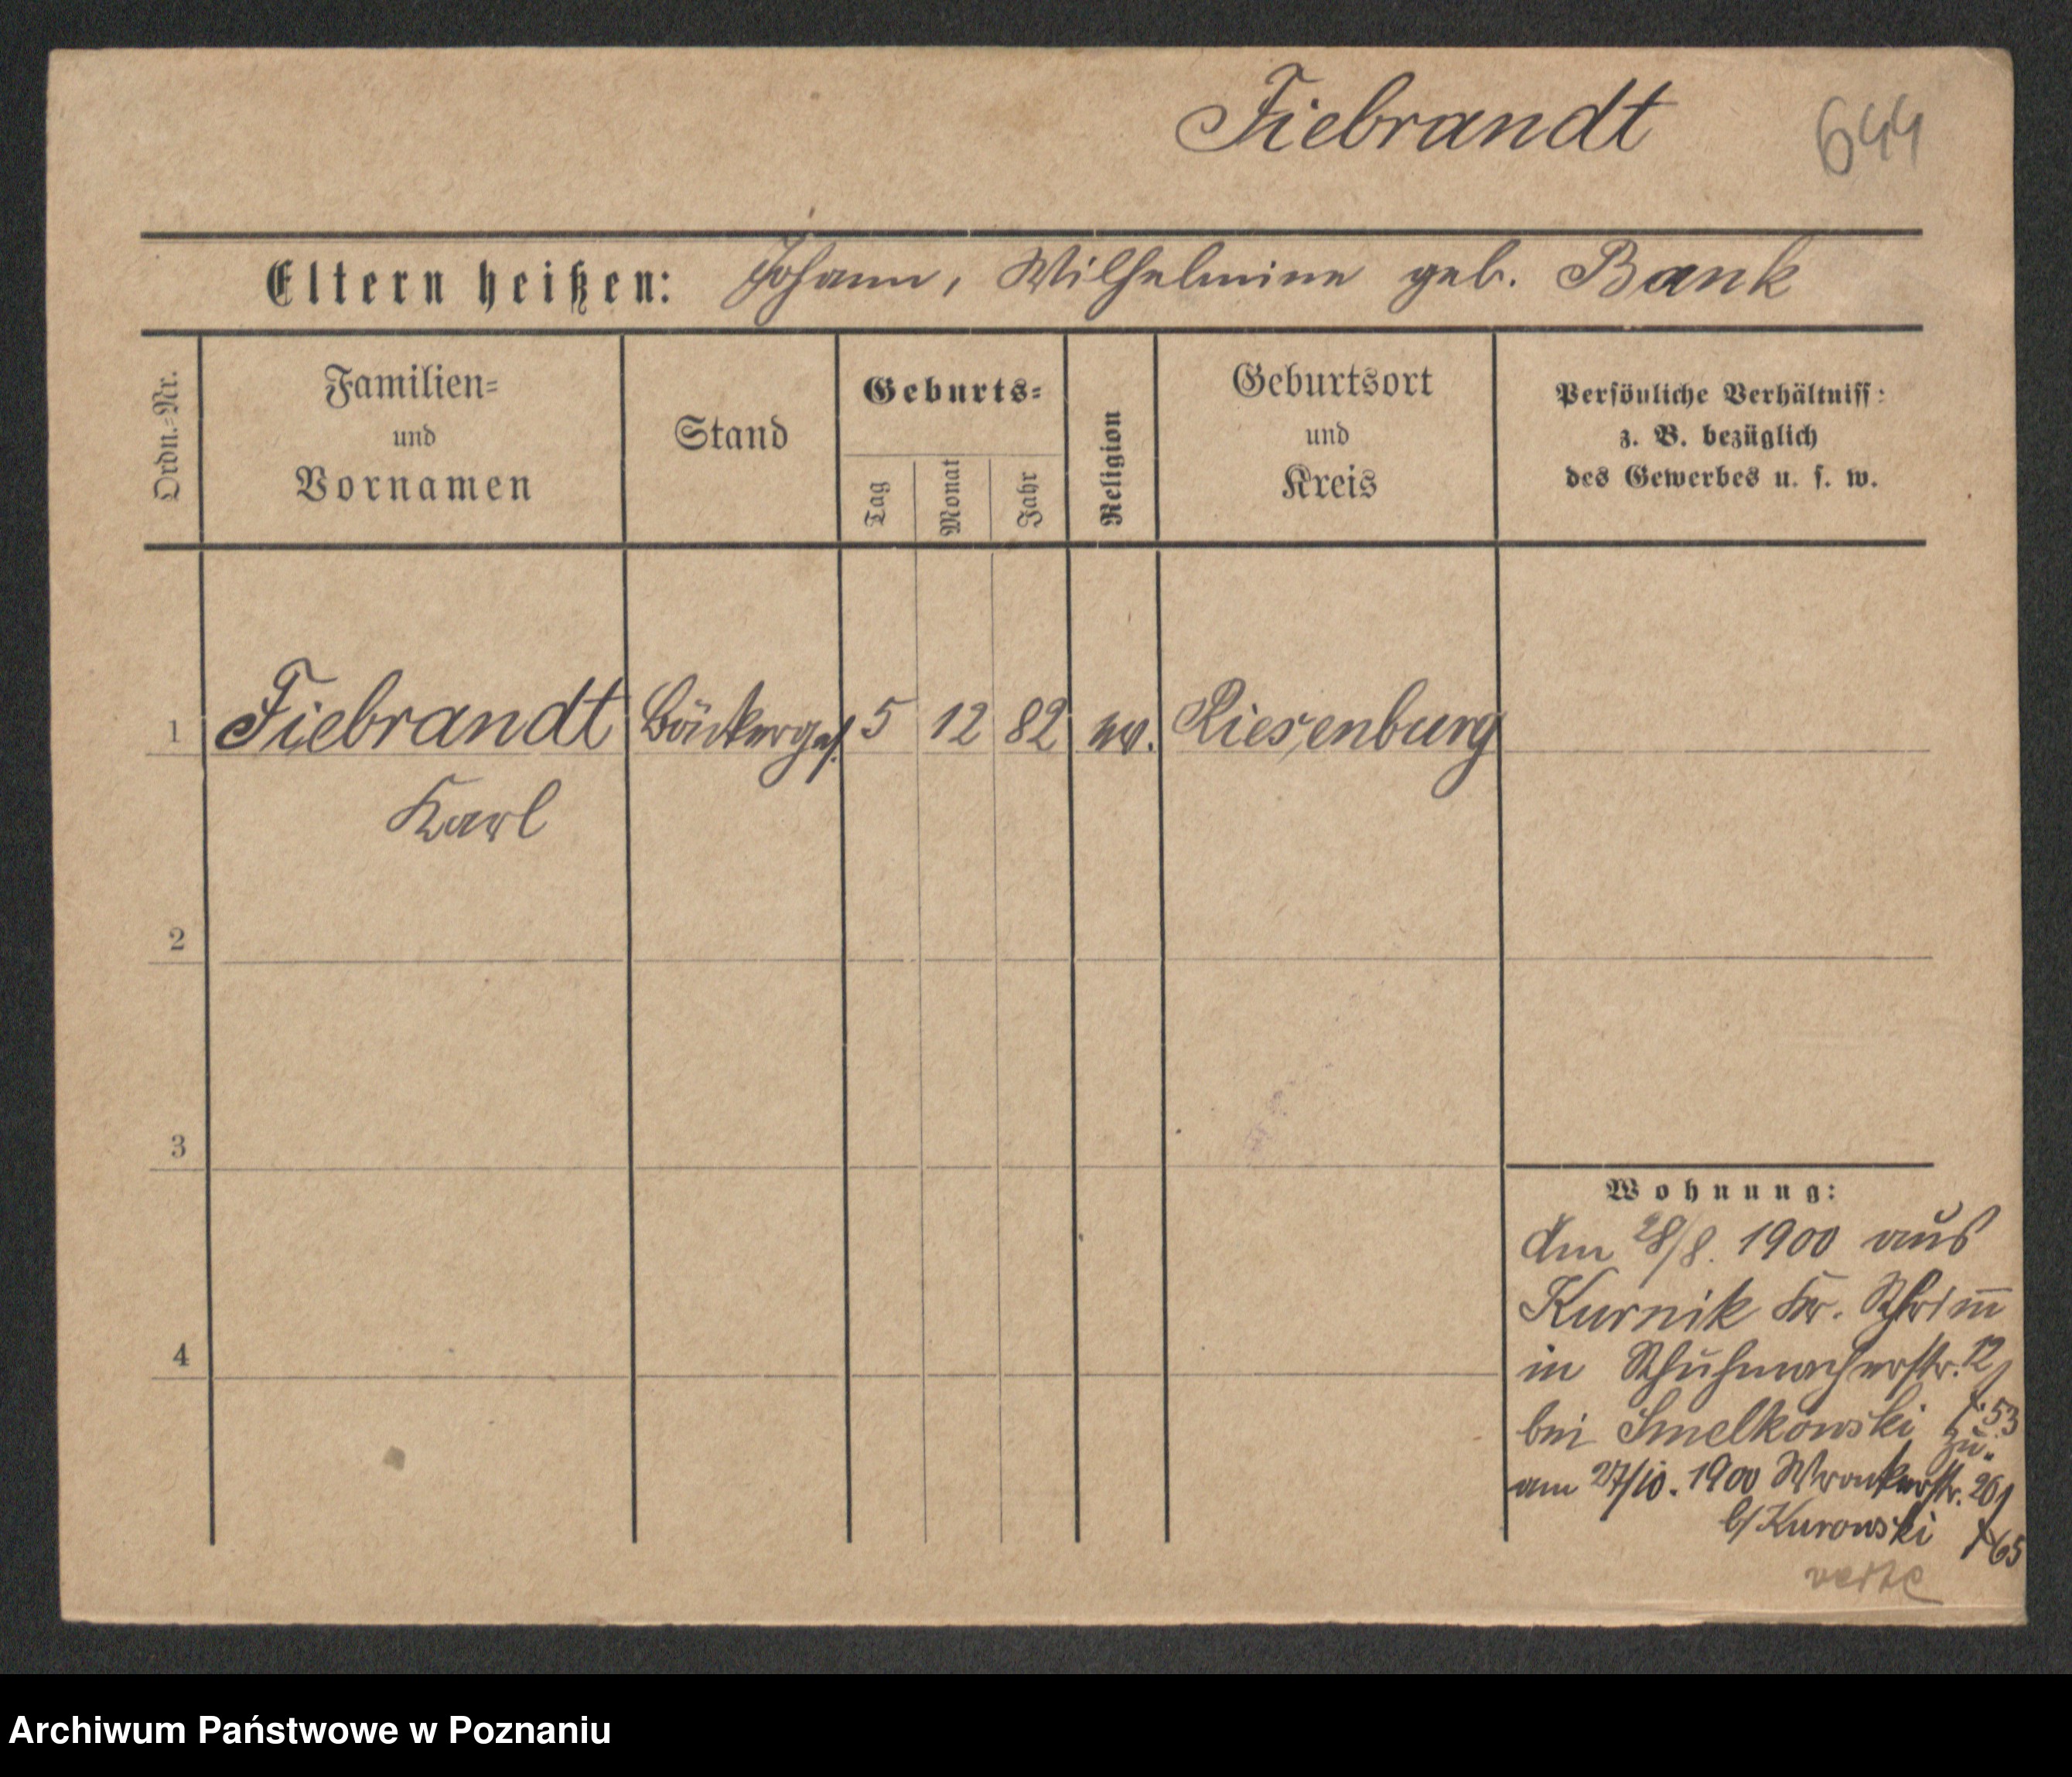 Fiebrandt 644
Eltern heißen: Johann, Wilhelmine geb. Bank
Ordn.=Nr.
Familien=
und
Vornamen
Stand
Geburts=
Tag
Monat
Jahr
Religion
Geburtsort
und
Kreis
Persönliche Verhältniss:
z. B. bezüglich
des Gewerbes u. s. w.
1 Fiebrandt Bäckerges. 5 12 82 ev. Riesenburg
Karl
2
3
4
Wohnung:
Am 28/8. 1900 aus
Kurnik Kr. Schrim̅
in Schuhmacherstr. 12
bei Smelkowski 53
zu.
am 27/10. 1900 Wronkerstr. 20
b/Kurowski 65
Archiwum Państwowe w Poznaniu